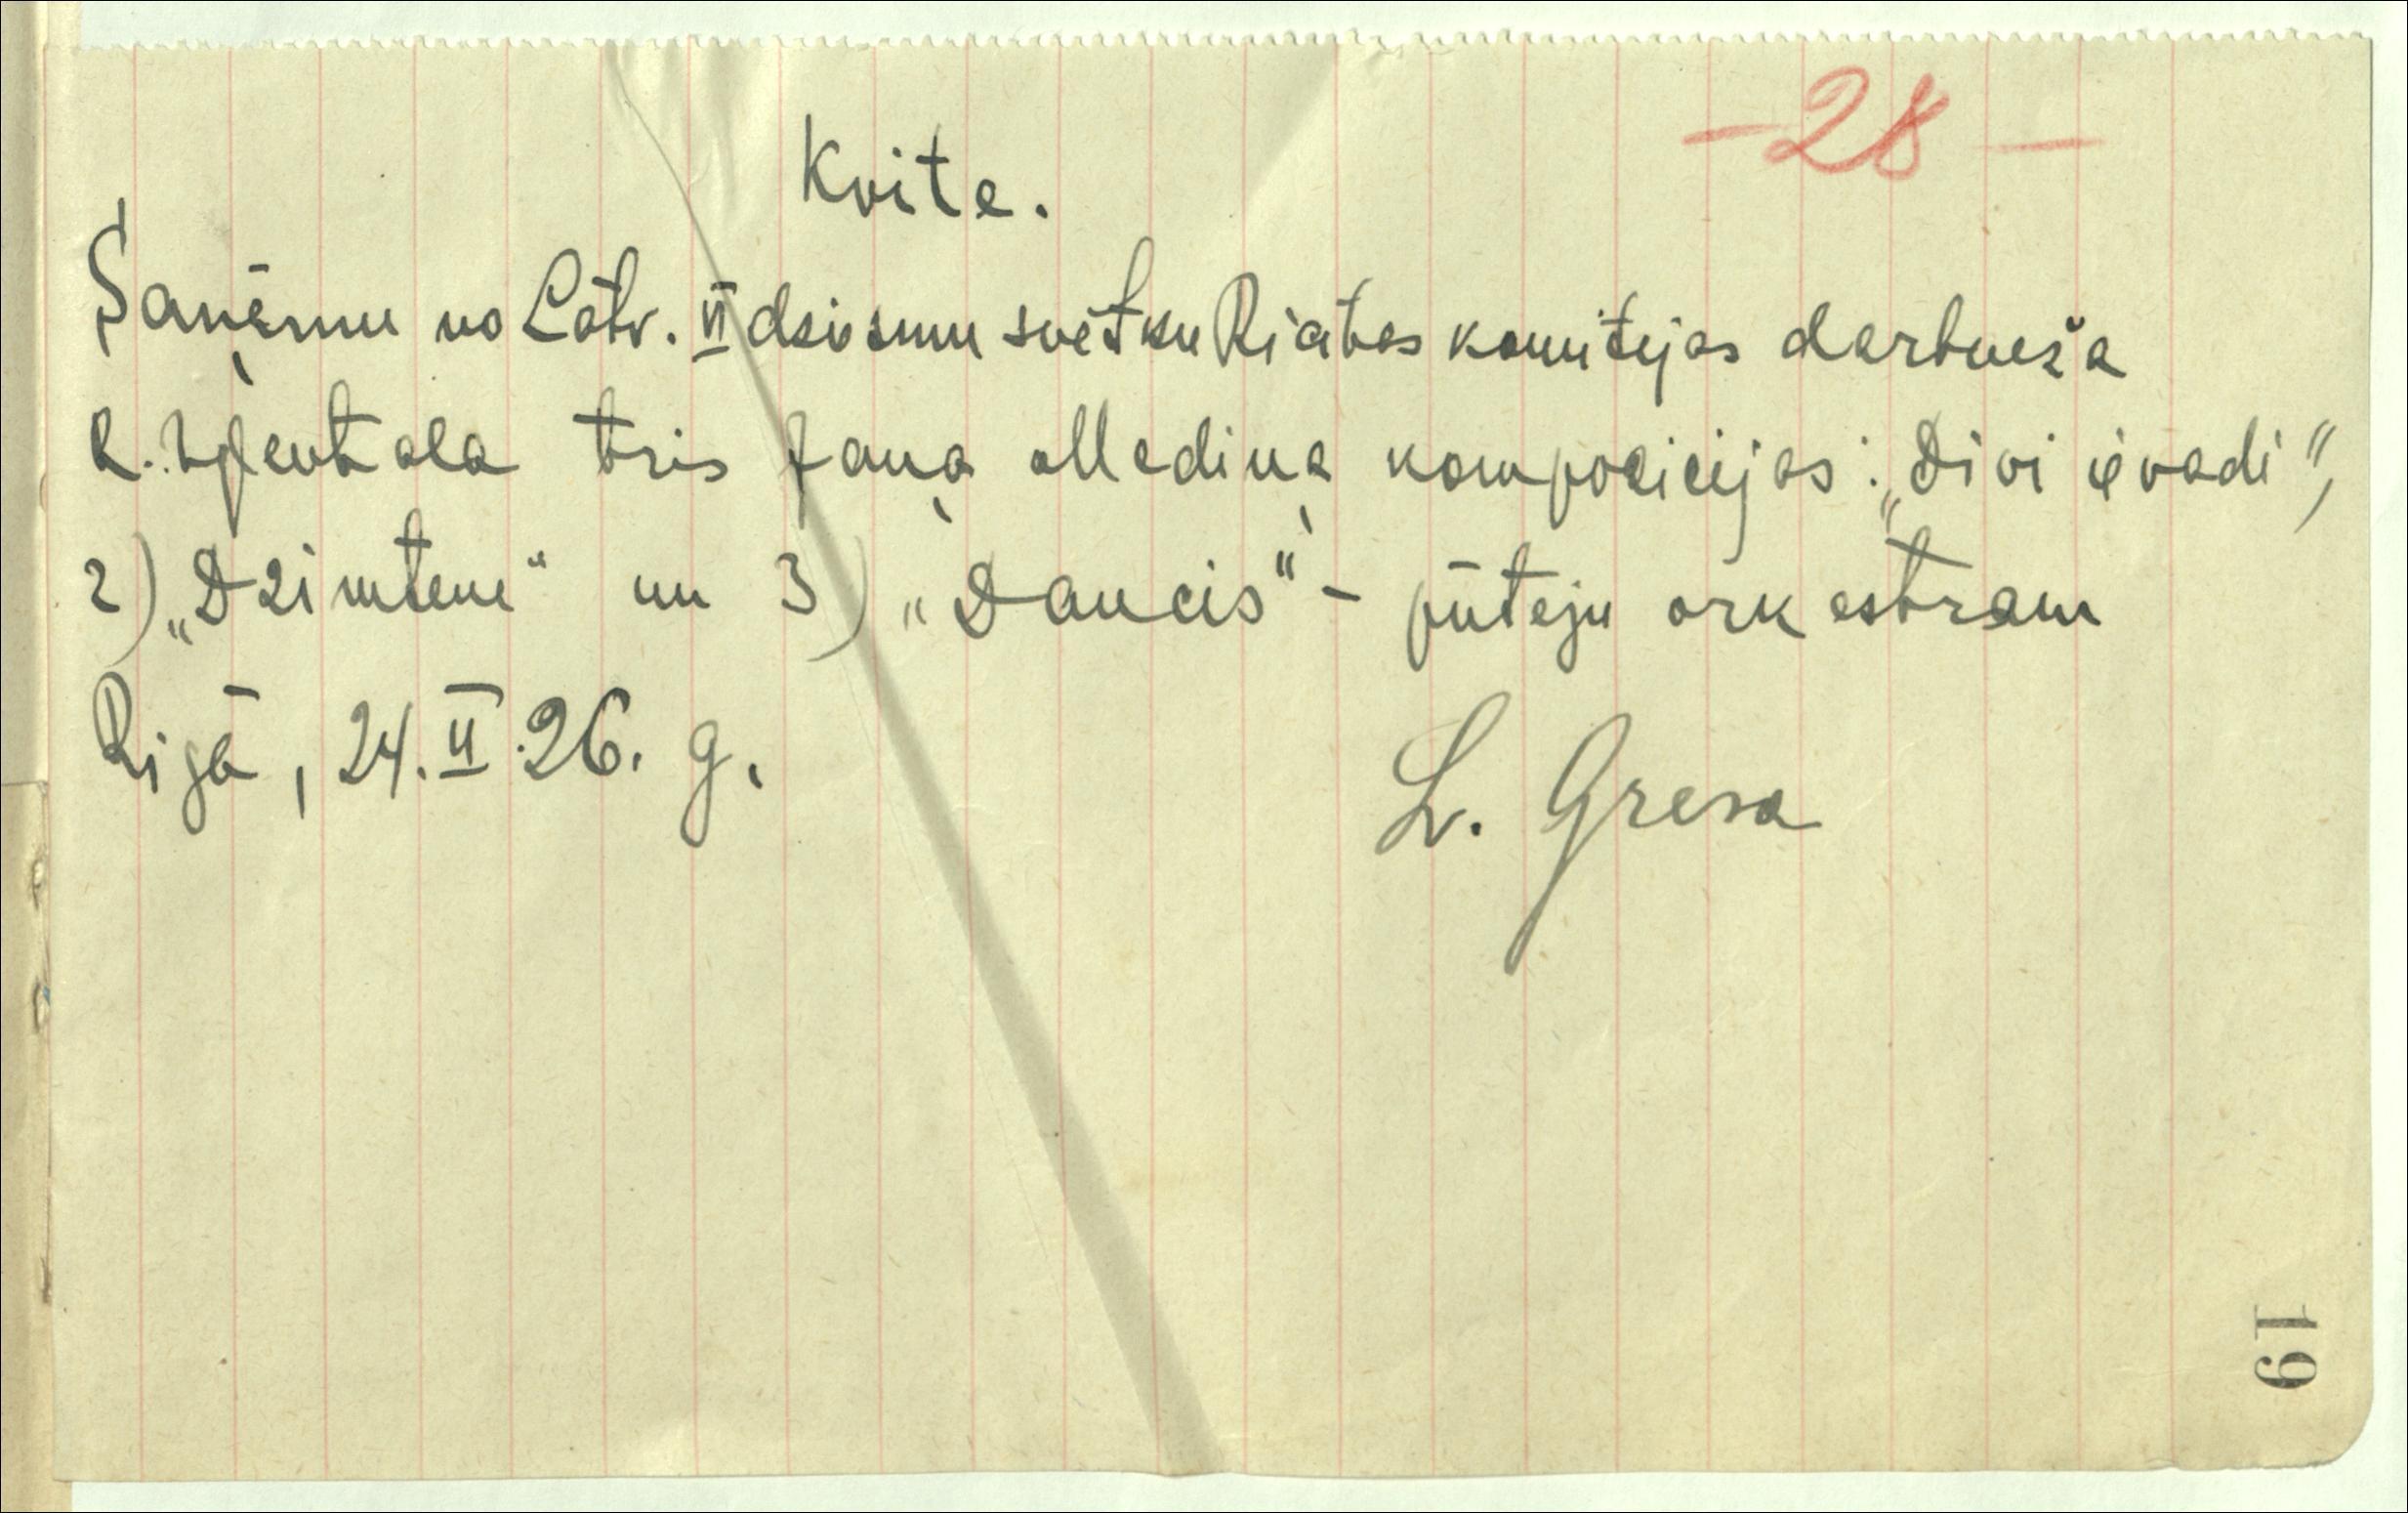 -28-
Kvite.
Saņēmu no Latv. VI dziesmu svētku Rīcības komitejas darbveža
tris Jaņa Mediņa kompozicijas: „Divi ievadi",
2) „Dzimtene" un 3) „Dancis" - pūteju orkestram
Rigā, 24. II. 26. g.
L. Gresa
19